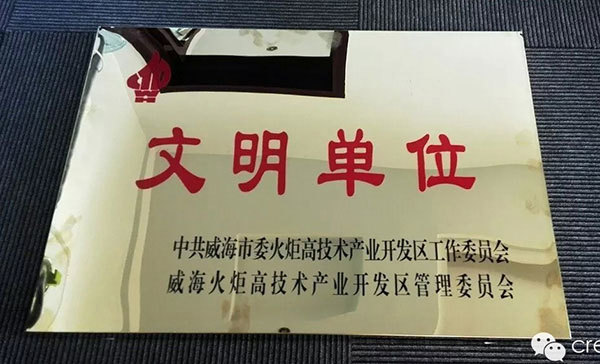 文明单位
中共威海市委火炬高技术产业开发区工作委员会
威海火炬高技术产业开发区管理委员会
cre